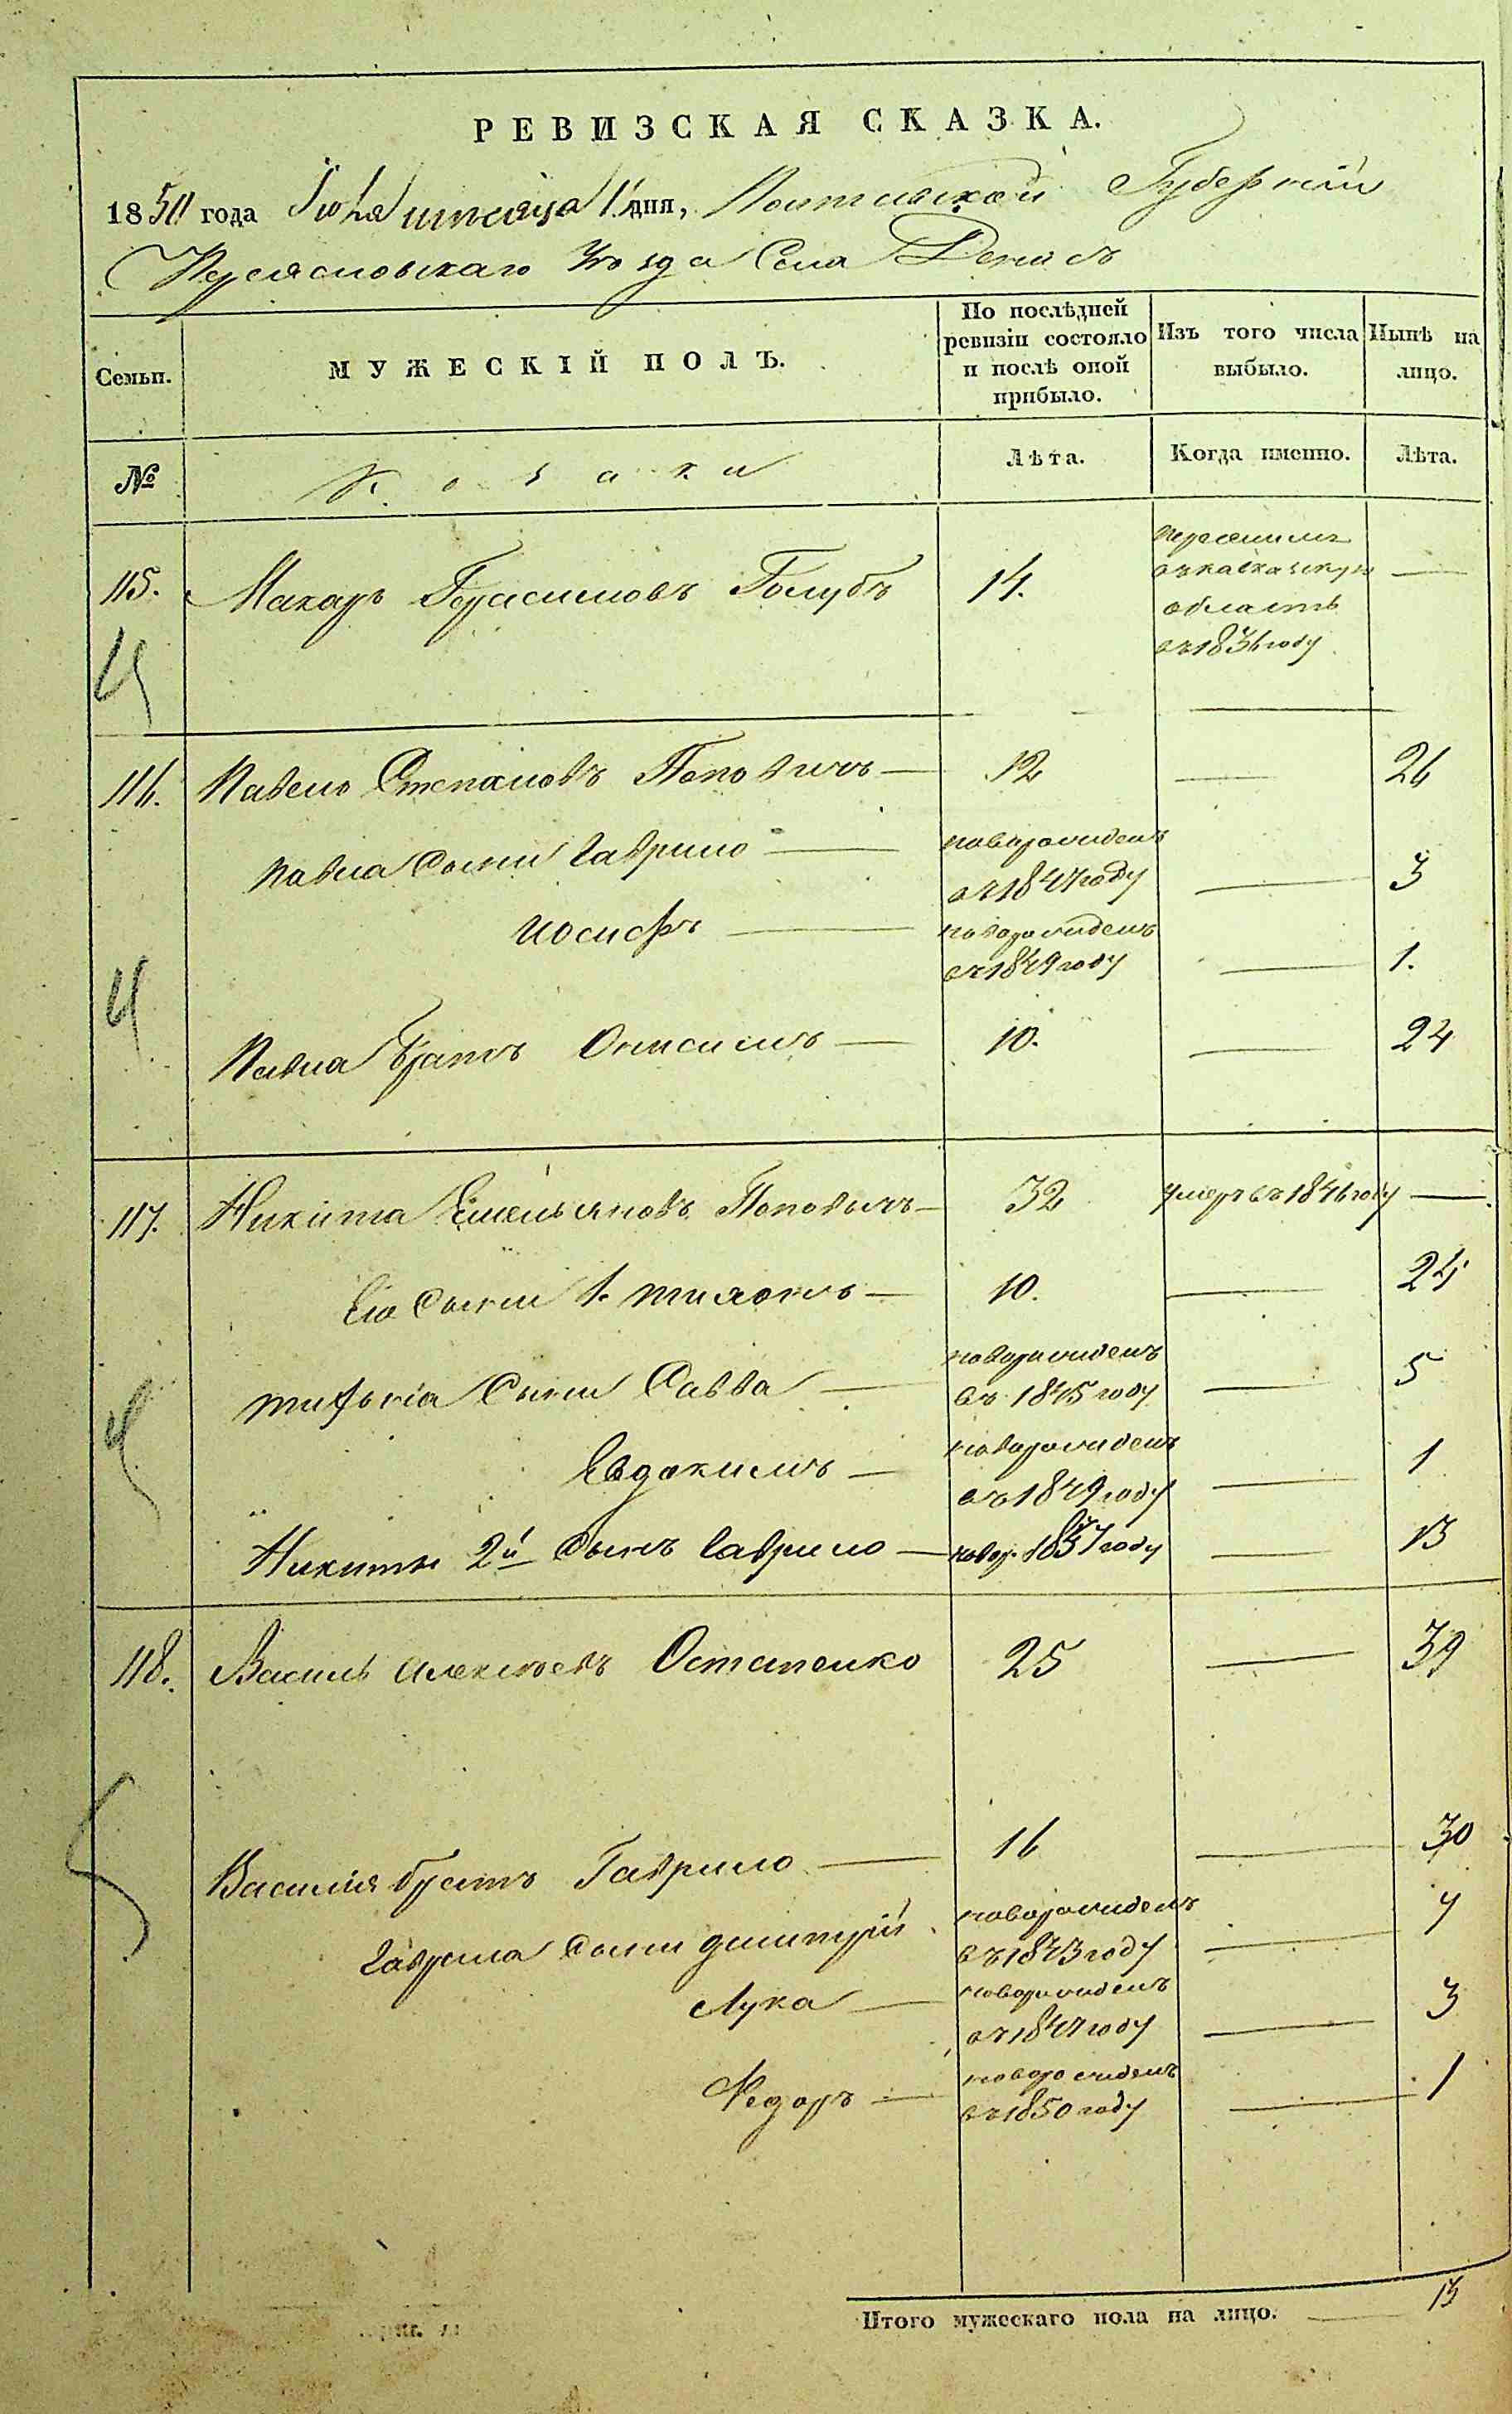 РЕВИЗСКАЯ СКАЗКА.
1850 года Іюля мѣсяца 1 дня, Полтавской Губерніи
Переясловскаго Уѣзда Села Денисъ
Семьи.
МУЖЕСКІЙ ПОЛЪ.
По послѣдней ревизіи состояло и послѣ оной прибыло.
Изъ того числа выбыло.
Нынѣ на лицо.
№
Козаки
Лѣта.
Когда именно.
Лѣта.
115. Макаръ Герасимовъ Голубъ 14. переселилъ —
въ кавказскую
область
въ 1836 году
116. Павело Степановъ Поповичъ — 12 — 26
Павла сыни Гаврило — новорожденъ
въ 1847 году — 3
Иосифъ — новорожденъ
въ 1849 году — 1.
Павла братъ Онисимъ — 10. — 24
117. Никита Емельяновъ Поповичъ — 32 умеръ въ 1846 году —
Его сыни 1. — 10. — 24
сыни Савва — новорожденъ
въ 1845 году — 5
Евдокимъ — новорожденъ
въ 1849 году — 1
Никиты 2й сынъ Гаврило — новор. 1837 году — 13
118. Василь Алексѣевъ Остапенко 25 — 39
Василія братъ Гаврило — 16 — 30
Гаврила сыни Дмитрій новорожденъ
въ 1843 году — 7
Лука — новорожденъ
въ 1847 году — 3
Федоръ — новорожденъ
въ 1850 году — 1
Итого мужескаго пола на лицо. — 13